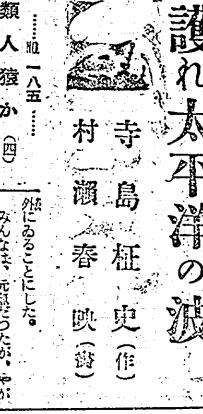 護れ太平洋の波
寺島柾史(作)
村瀬春映(畫)
……NO一八五……
類人猿か(四)
外にゐることにした。
みんなは、元氣だつたが、やが